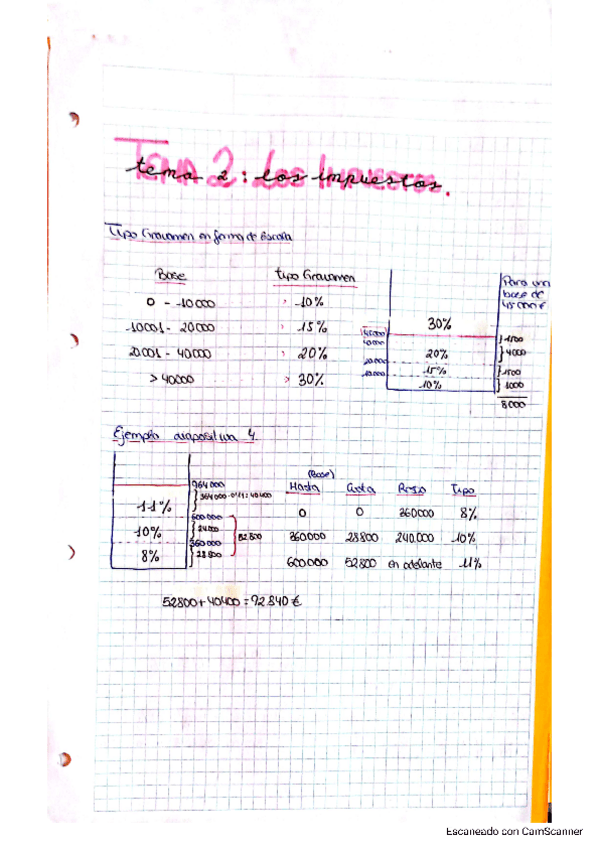 TEMA 2: LOS IMPUESTOS.
tema 2: los impuestos.
Tipo Gravamen en forma de Escala
Base tipo Gravamen
0 - 10000 10%
10001 - 20000 15%
20001 - 40000 20%
> 40000 30%
Para un
base de
45000€
30%
45000
40000
1500
20%
4000
20000
15%
1500
10000
10%
1000
8000
Ejemplo diapositiva 4.
964000
11%
600000
10%
24000
52800
360000
8%
28800
(Base)
Hasta Cuota Resto Tipo
0 0 360000 8%
360000 28800 240.000 10%
600000 52800 en adelante 11%
52800 + 40400 = 92840 €
Escaneado con CamScanner